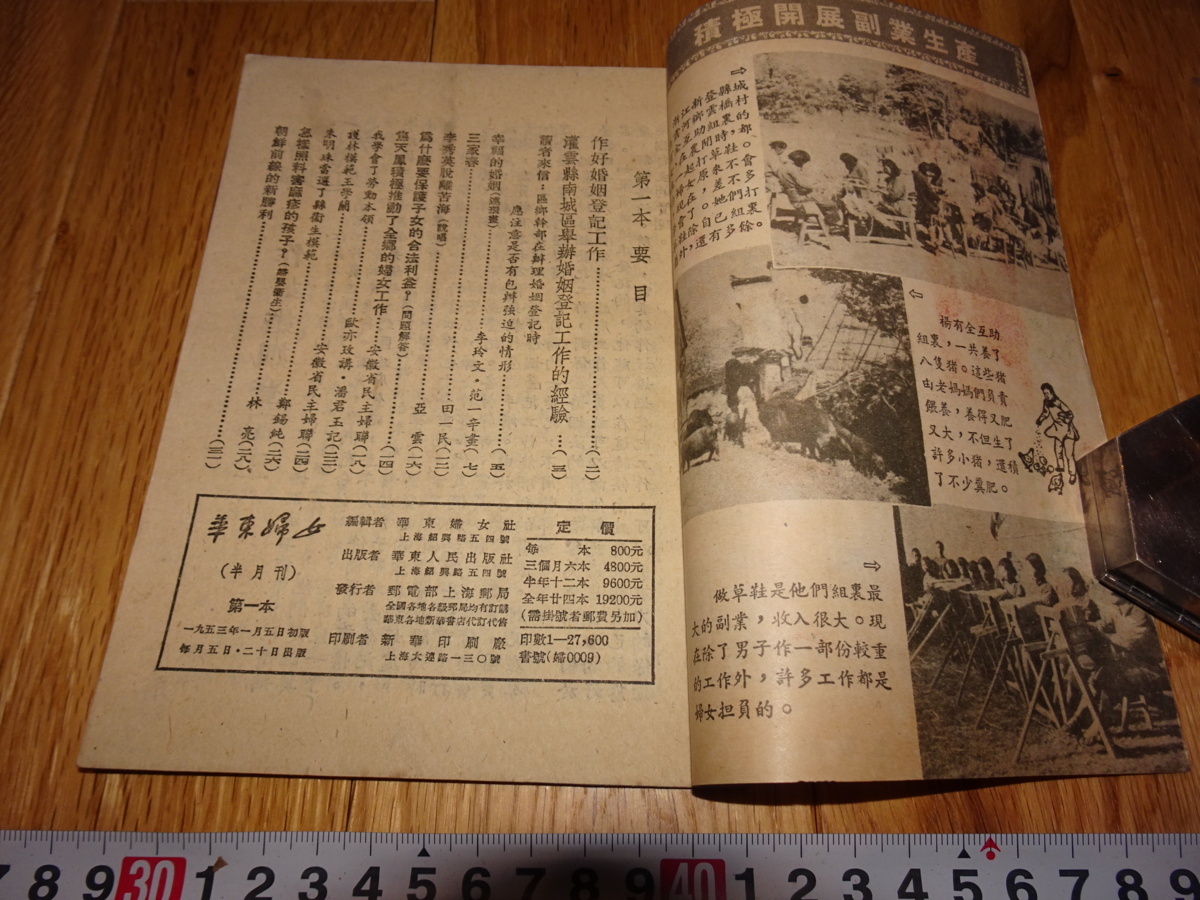 積極開展副業生產
楊有全互助
組裏，一共養了
八隻豬。這些豬
由老媽媽們負責
餵養，養得又肥
又大，不但生了
許多小豬，還積
了不少糞肥。
做草鞋是他們組裏最
大的副業，收入很大。現
在除了男子作一部份較重
的工作外，許多工作都是
婦女担負的。
第一本要目
作好婚姻登記工作……(二)
灌雲縣南城區舉辦婚姻登記工作的經驗…(三)
讀者來信：區鄉幹部在辦理婚姻登記時
應注意是否有包辦强迫的情形……(五)
幸福的婚姻(連環畫)……李玲文·范一辛畫(七)
三家春……田一民(一二)
李秀英脫離苦海(說唱)……亞雲(一六)
爲什麼要保護子女的合法利益？(問題解答)……(一四)
天鳳積極推動了全鄉的婦女工作……安徽省民主婦聯(一八)
我學會了勞動本領……歐亦玫講·潘君玉記(二二)
護林模範王學蘭……安徽省民主婦聯(二四)
朱明珠當選了縣衞生模範……鄭錫純(二六)
怎樣照料害麻疹的孩子？(婦嬰衞生)……林亮(二八)
朝鮮前線的新勝利……(三一)
華東婦女
(半月刊)
第一本
一九五三年一月五日初版
每月五日·二十日出版
編輯者 華東婦女社
上海紹興路五四號
出版者 華東人民出版社
上海紹興路五四號
發行者 郵電部上海郵局
全國各地各級郵局均有訂購
華東各地新華書店代訂代售
印刷者 新華印刷廠
上海大連路一三〇號
定價
每本 800元
三個月六本 4800元
半年十二本 9600元
全年廿四本 19200元
(需掛號者郵費另加)
印數1—27,600
書號(婦0009)
7 8 9 30 1 2 3 4 5 6 7 8 9 40 1 2 3 4 5 6 7 8 9